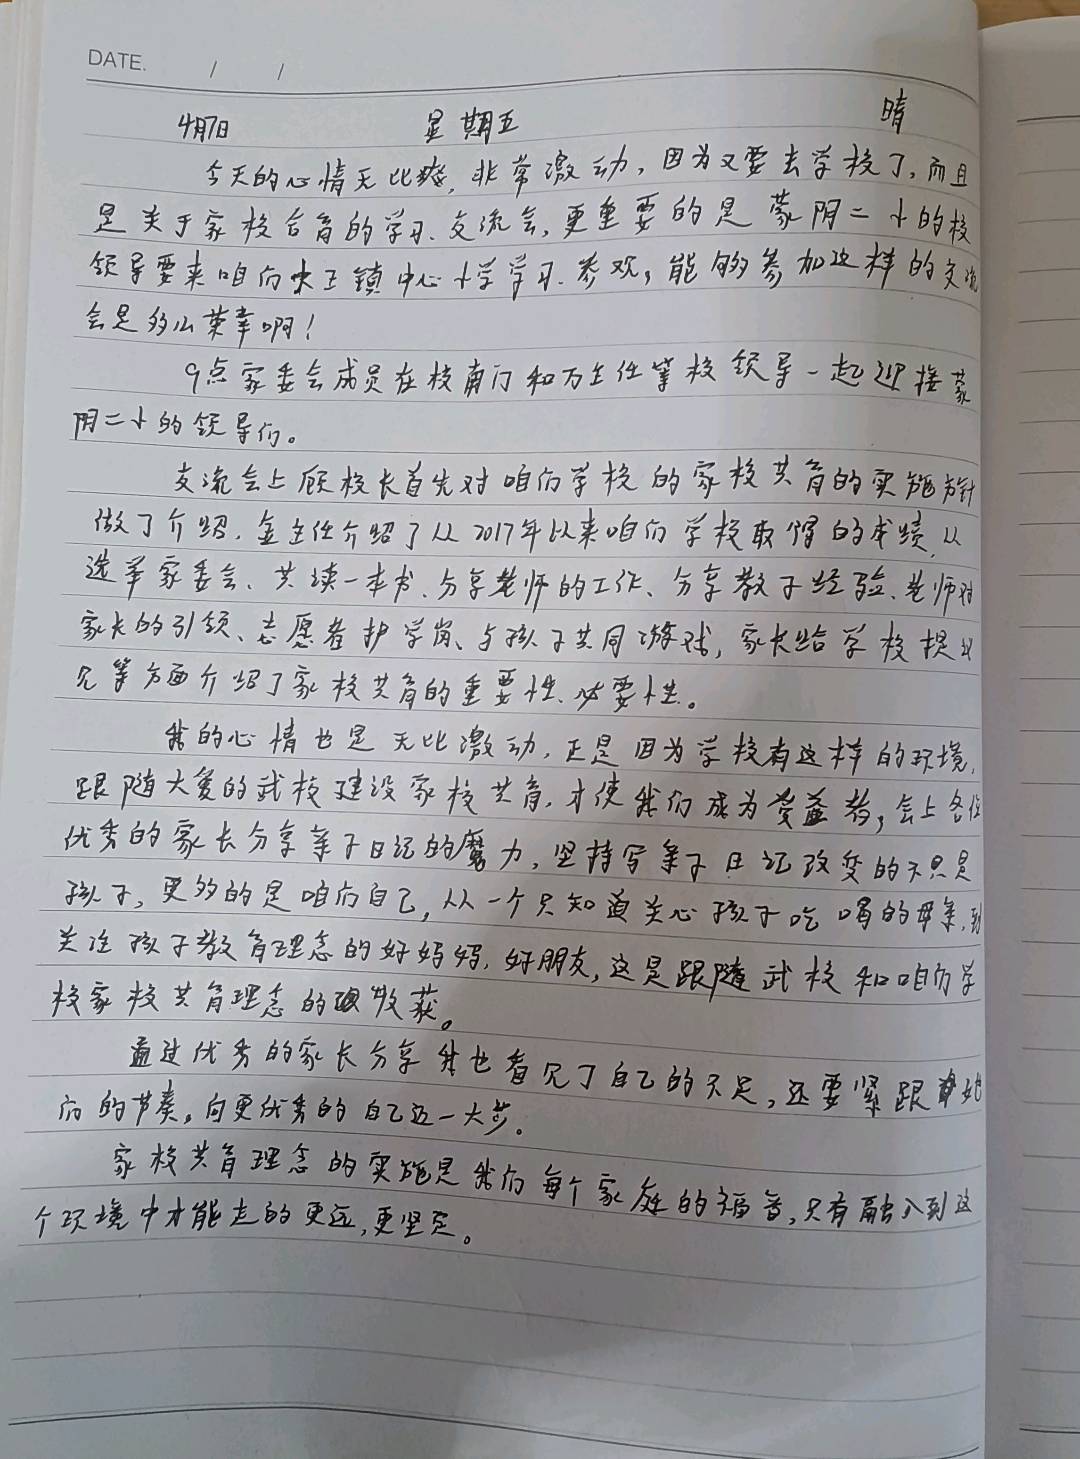 DATE. / /
4月7日 星期五 晴
今天的心情无比爽,非常激动,因为又要去学校了,而且
是关于家校合育的学习、交流会,更重要的是蒙阴二小的校
领导要来咱们大王镇中心小学学习、参观,能够参加这样的交流
会是多么荣幸啊!
9点家委会成员在校南门和万主任等校领导一起迎接蒙
阴二小的领导们。
交流会上顾校长首先对咱们学校的家校共育的实施方针
做了介绍,金主任介绍了从2017年以来咱们学校取得的成绩,从
选举家委会、共读一本书、分享老师的工作、分享教子经验、老师对
家长的引领、志愿者护学岗、与孩子共同游戏,家长给学校提议
见等方面介绍了家校共育的重要性、必要性。
我的心情也是无比激动,正是因为学校有这样的环境,
跟随大爱的武校建设家校共育,才使我们成为受益者,会上各位
优秀的家长分享亲子日记的魔力,坚持写亲子日记改变的不只是
孩子,更多的是咱们自己,从一个只知道关心孩子吃喝的母亲,到
关注孩子教育理念的好妈妈,好朋友,这是跟随武校和咱们学
校家校共育理念的收获。
通过优秀的家长分享我也看见了自己的不足,还要紧跟她
们的节奏,向更优秀的自己迈一大步。
家校共育理念的实施是我们每个家庭的福音,只有融入到这
个环境中才能走的更远,更坚定。